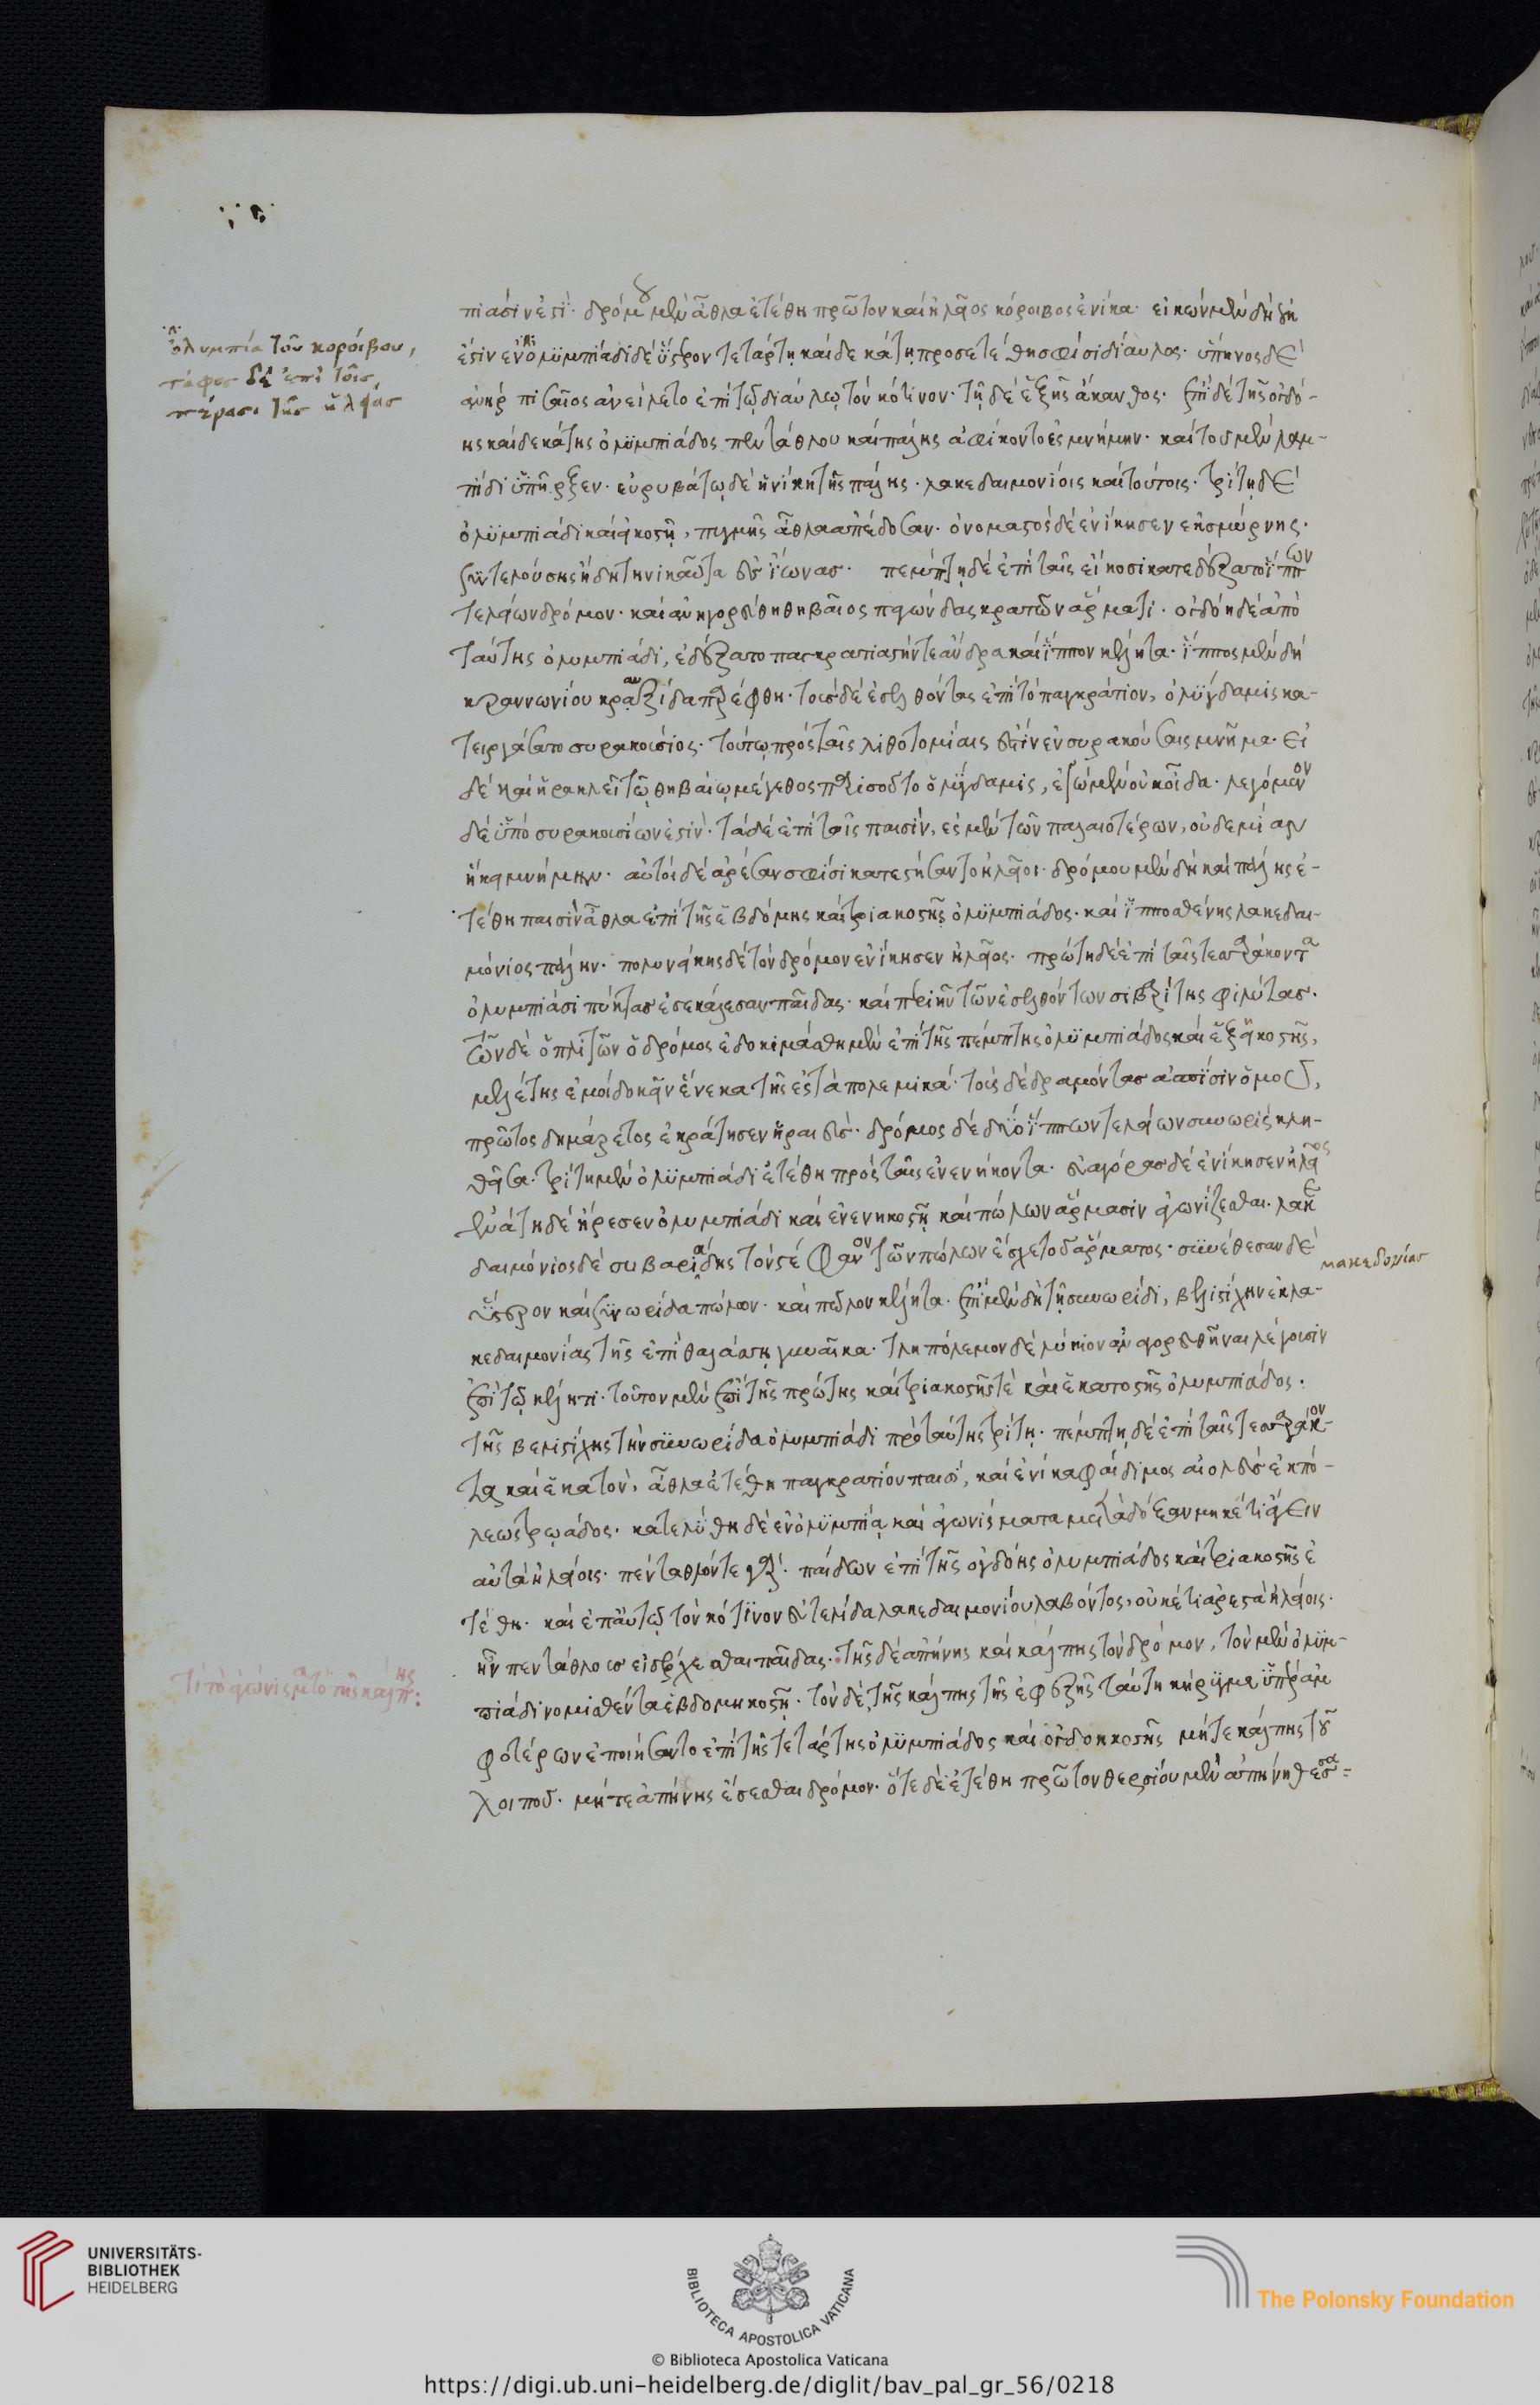 πιάσιν ἐστί· δρόμου μὲν ἆθλα ἐτέθη πρῶτον καὶ ἠλεῖος κόροιβος ἐνίκα· εἰκὼν μὲν δὴ
ἔστιν ἐν ὀλυμπιάδι δὲ ὕστερον τετάρτῃ καὶ δεκάτῃ προσετέθη σφίσι δίαυλος· ὕπηνος δὲ
ἀνὴρ πισαῖος ἀνείλετο ἐπὶ τῷ διαύλῳ τὸν κότινον· τῇ δὲ ἑξῆς ἄκανθος· ἐπὶ δὲ τῆς ὀγδό-
ης καὶ δεκάτης ὀλυμπιάδος πεντάθλου καὶ πάλης ἀφίκοντο ἐς μνήμην· καὶ τοῦ μὲν λαμ-
πίδι ὑπῆρξεν· εὐρυβάτῳ δὲ ἡ νίκη τῆς πάλης· λακεδαιμονίοις καὶ τούτοις· τρίτῃ δὲ
ὀλυμπιάδι καὶ εἰκοστῇ, πυγμῆς ἆθλα ἀπέδοσαν· ὀνομαστὸς δὲ ἐνίκησεν ἐκ σμύρνης·
συντελούσης ἤδη τηνικαῦτα ἐς ἴωνας· πέμπτῃ δὲ ἐπὶ ταῖς εἴκοσι κατεδέξαντο ἵππων
τελείων δρόμον· καὶ ἀνηγορεύθη θηβαῖος παγώνδας κρατῶν ἅρματι· ὀγδόῃ δὲ ἀπὸ
ταύτης ὀλυμπιάδι, ἐδέξαντο παγκρατιαστήν τε ἄνδρα καὶ ἵππον κέλητα· ἵππος μὲν δὴ
κραννωνίου κραυξίδα παρέφθη· τοὺς δὲ ἐσελθόντας ἐπὶ τὸ παγκράτιον, ὁ λύγδαμις κα-
τειργάσατο συρακούσιος· τούτῳ πρὸς ταῖς λιθοτομίαις ἐστὶν ἐν συρακούσαις μνῆμα· εἰ
δὲ καὶ ἡρακλεῖ τῷ θηβαίῳ μέγεθος παρισοῦτο ὁ λύγδαμις, ἐγὼ μὲν οὐκ οἶδα· λεγόμενον
δὲ ὑπὸ συρακουσίων ἐστίν· τὰ δὲ ἐπὶ τοῖς παισίν, ἐς μὲν τῶν παλαιοτέρων, οὐδεμίαν
ἥκει μνήμην· αὐτοὶ δὲ ἀρέσαν σφίσι κατεστήσαντο ἠλεῖοι· δρόμου μὲν δὴ καὶ πάλης ἐ-
τέθη παισὶν ἆθλα ἐπὶ τῆς ἑβδόμης καὶ τριακοστῆς ὀλυμπιάδος· καὶ ἱπποσθένης λακεδαι-
μόνιος πάλην· πολυνείκης δὲ τὸν δρόμον ἐνίκησεν ἠλεῖος· πρώτῃ δὲ ἐπὶ ταῖς τεσσαράκοντα
ὀλυμπιάσι πύκτας ἐσεκάλεσαν παῖδας· καὶ περιῆν τῶν ἐσελθόντων συβαρίτης φιλύτας·
τῶν δὲ ὁπλιτῶν ὁ δρόμος ἐδοκιμάσθη μὲν ἐπὶ τῆς πέμπτης ὀλυμπιάδος καὶ ἑξηκοστῆς,
μελέτης ἐμοὶ δοκεῖν ἕνεκα τῆς ἐς τὰ πολεμικά· τοὺς δὲ δραμόντας ἀσπίσιν ὁμοῦ,
πρῶτος δημάρετος ἐκράτησεν ἡραιεύς· δρόμος δὲ δύο ἵππων τελείων συνωρὶς κλη-
θεῖσα· τρίτῃ μὲν ὀλυμπιάδι ἐτέθη πρὸς ταῖς ἐνενήκοντα· εὐαγόρας δὲ ἐνίκησεν ἠλεῖος
ἐνάτῃ δὲ ἤρεσεν ὀλυμπιάδι καὶ ἐνενηκοστῇ καὶ πώλων ἅρμασιν ἀγωνίζεσθαι· λακε
δαιμόνιος δὲ συβαριάδης τὸν στέφανον τῶν πώλων ἔσχε τοῦ ἅρματος· συνέθεσαν δὲ
ὕστερον καὶ συνωρίδα πώλων· καὶ πῶλον κέλητα· ἐπὶ μὲν δὴ τῇ συνωρίδι, βελιστίχην ἐκ λα-
κεδαιμονίας τῆς ἐπὶ θαλάσσῃ γυναῖκα· τληπόλεμον δὲ λύκιον ἀναγορευθῆναι λέγουσιν
ἐπὶ τῷ κέλητι· τοῦτον μὲν ἐπὶ τῆς πρώτης καὶ τριακοστῆς τὲ καὶ ἑκατοστῆς ὀλυμπιάδος·
τῆς βελιστίχης τὴν συνωρίδα ὀλυμπιάδι πρὸ ταύτης τρίτῃ· πέμπτῃ δὲ ἐπὶ ταῖς τεσσαράκον-
τα καὶ ἑκατὸν, ἆθλα ἐτέθη παγκρατίου παισί, καὶ ἐνίκα φαίδιμος αἰολεὺς ἐκ πό-
λεως τρωάδος· κατελύθη δὲ ἐν ὀλυμπίᾳ καὶ ἀγωνίσματα μεταδόξαν μηκέτι ἄγειν
αὐτὰ ἠλείοις· πένταθλόν τε γὰρ παίδων ἐπὶ τῆς ὀγδόης ὀλυμπιάδος καὶ τριακοστῆς ἐ
τέθη· καὶ ἐπ' αὐτῷ τὸν κότινον εὐτελίδα λακεδαιμονίου λαβόντος, οὐκέτι ἀρεστὰ ἠλείοις·
ἦν πεντάθλους εἰσέρχεσθαι παῖδας· τῆς δὲ ἀπήνης καὶ κάλπης τὸν δρόμον, τὸν μὲν ὀλυμ-
πιάδι νομισθέντα ἑβδομηκοστῇ· τὸν δὲ τῆς κάλπης τῆς ἐφεξῆς ταύτῃ κήρυγμα ὑπὲρ ἀμ
φοτέρων ἐποιήσαντο ἐπὶ τῆς τετάρτης ὀλυμπιάδος καὶ ὀγδοηκοστῆς μήτε κάλπης τοῦ
λοιποῦ· μήτε ἀπήνης ἔσεσθαι δρόμον· ὅτε δὲ ἐτέθη πρῶτον θερσίου μὲν ἀπήνη θεσσα=
ὀλυμπία τοῦ κοροίβου,
τάφος δὲ ἐπὶ τοῖς
πέρασι τῆς ἠλείας
μακεδονίας
τί τὸ ἀγώνισμα τὸ τῆς κάλπης:
UNIVERSITÄTS-
BIBLIOTHEK
HEIDELBERG
BIBLIOTECA APOSTOLICA VATICANA
The Polonsky Foundation
© Biblioteca Apostolica Vaticana
https://digi.ub.uni-heidelberg.de/diglit/bav_pal_gr_56/0218